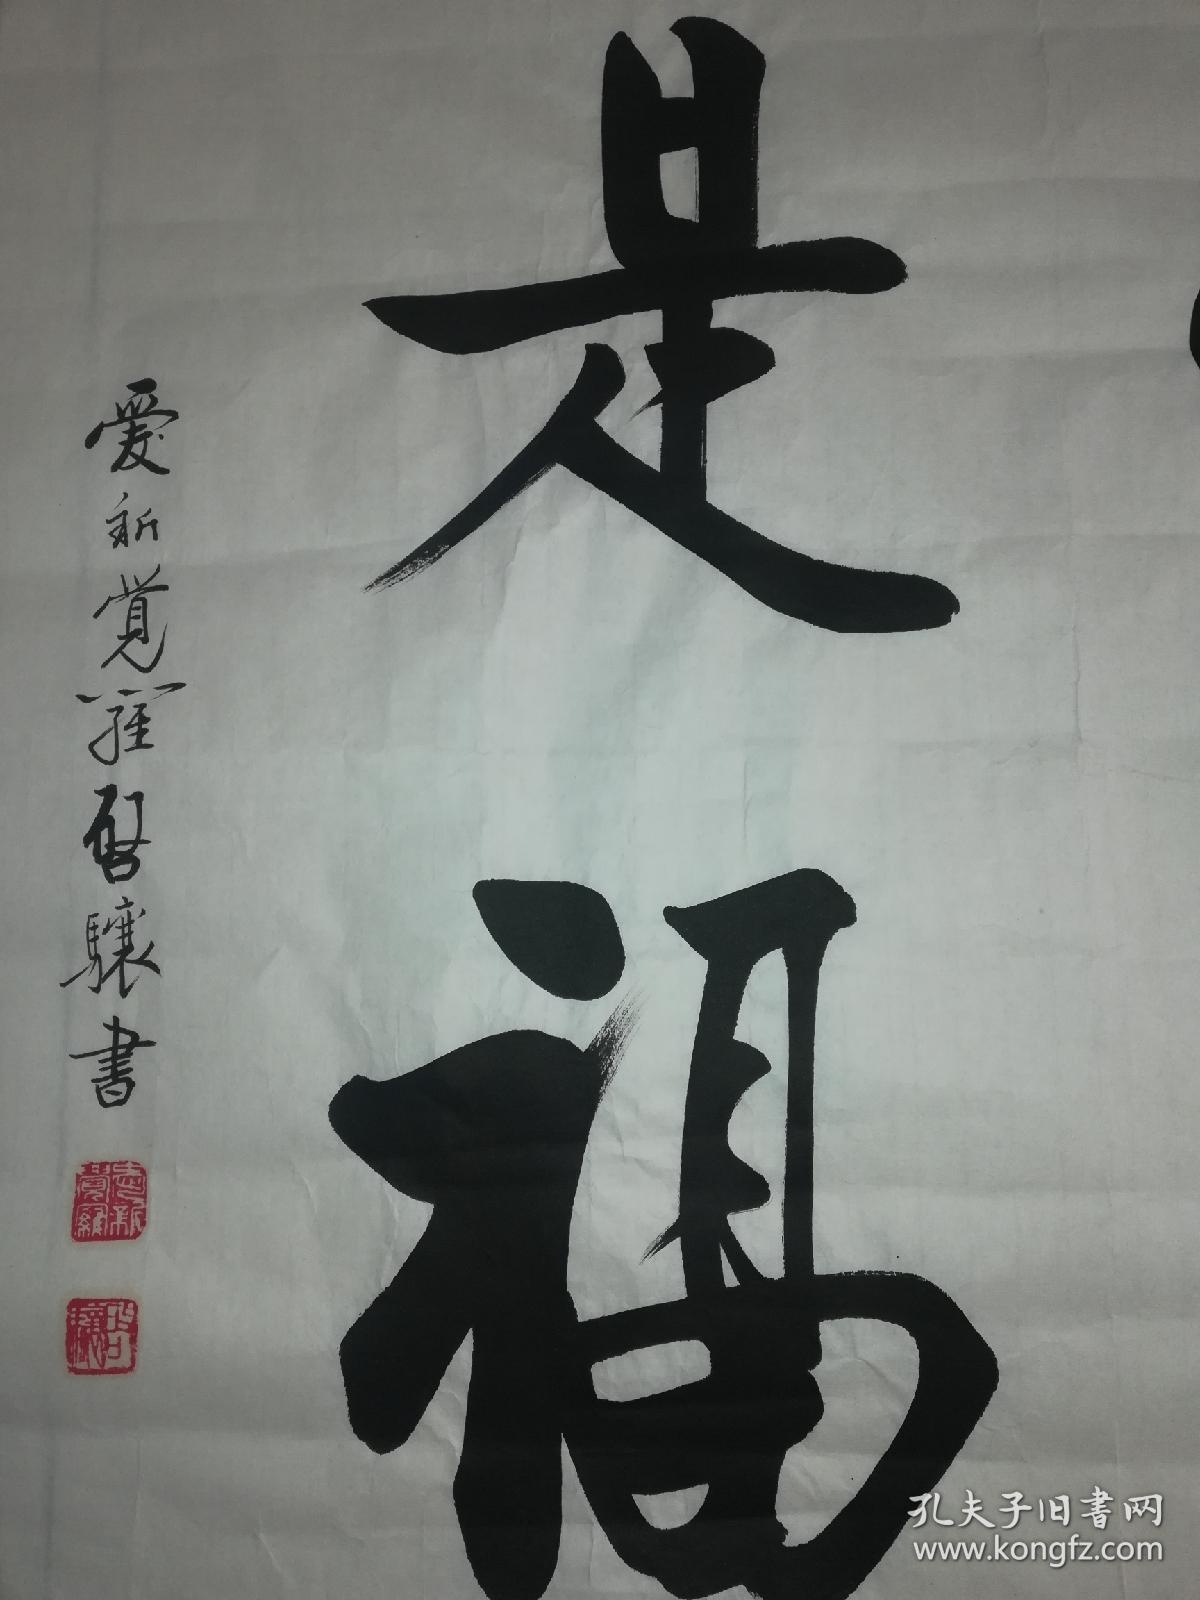 是福
愛新覺羅啓驤書
愛新
覺羅
啓
驤
孔夫子旧书网
www.kongfz.com